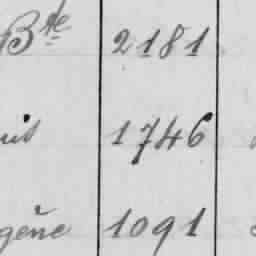 Bte 2181
uis 1746
gène 1091